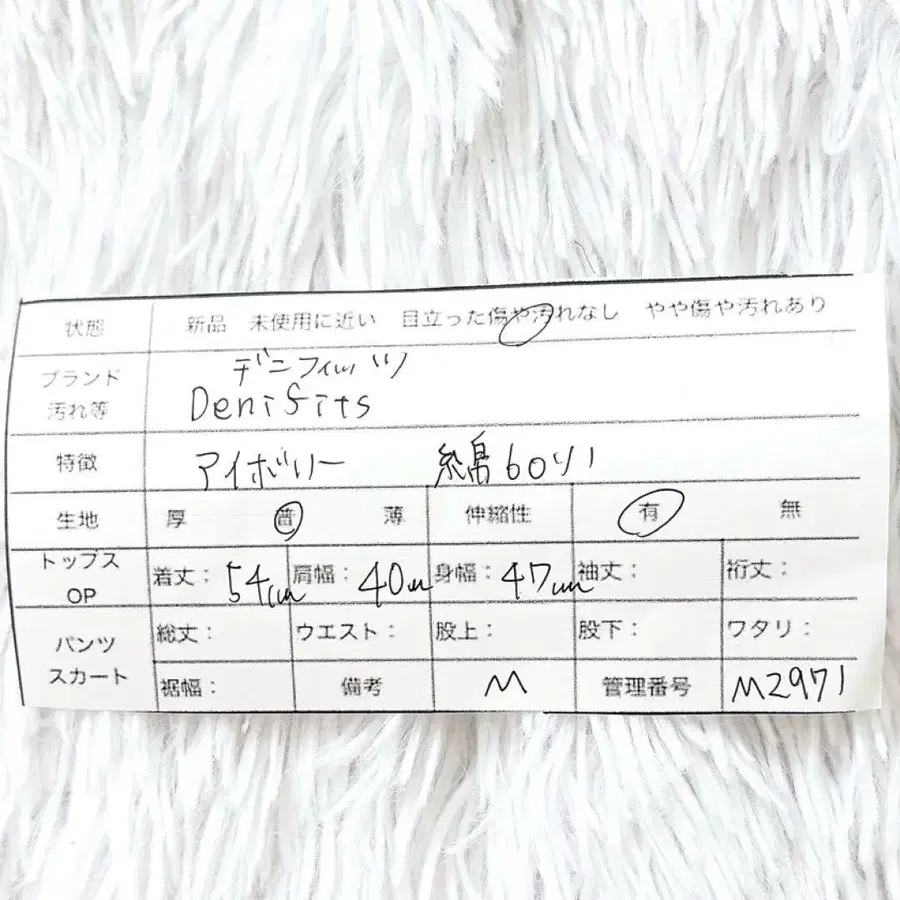 状態 新品 未使用に近い 目立った傷や汚れなし やや傷や汚れあり
ブランド デニフィッツ
汚れ等 Denifits
特徴 アイボリー 綿60
生地 厚 普 薄 伸縮性 有 無
トップス
OP 着丈: 54cm 肩幅: 40cm 身幅: 47cm 袖丈: 裄丈:
パンツ 総丈: ウエスト: 股上: 股下: ワタリ:
スカート 裾幅: 備考 M 管理番号 M2971